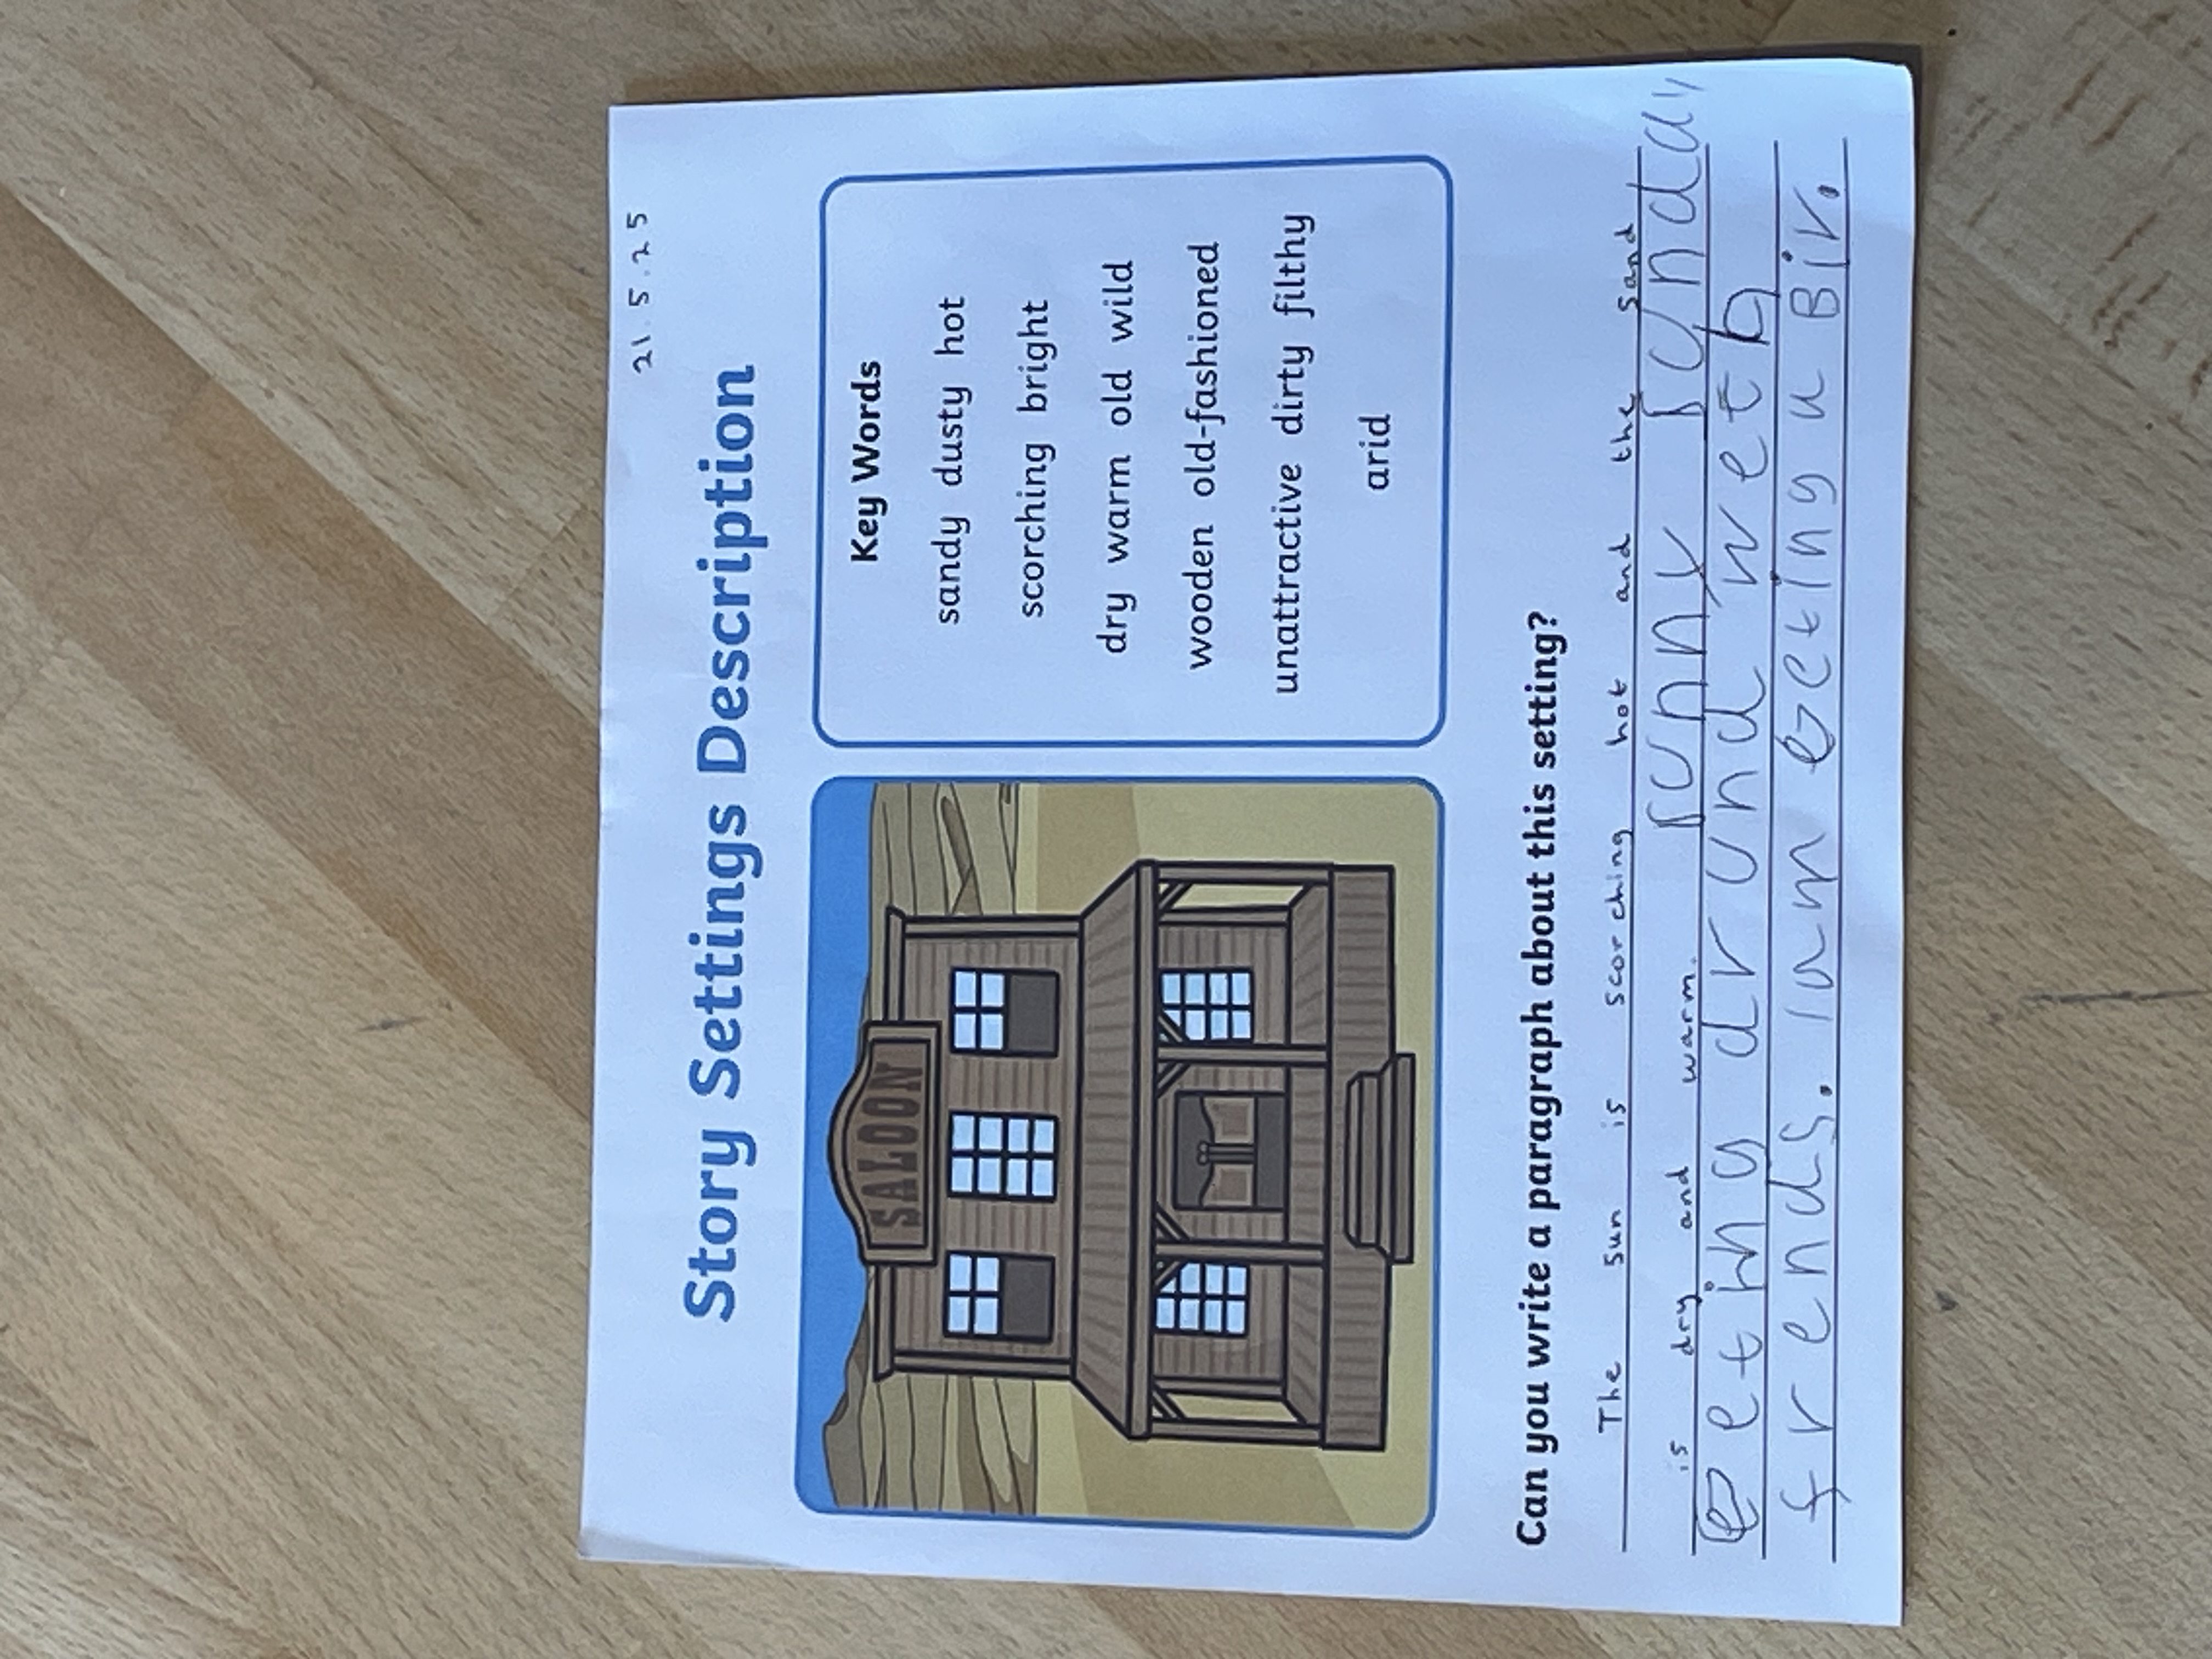 21.5.25
Story Settings Description
SALOON
Key Words
sandy dusty hot
scorching bright
dry warm old wild
wooden old-fashioned
unattractive dirty filthy
arid
Can you write a paragraph about this setting?
The sun is scorching hot and the sand
is dry and warm. sunny
eting dr and wet
frends. Iam eeting a Bir.